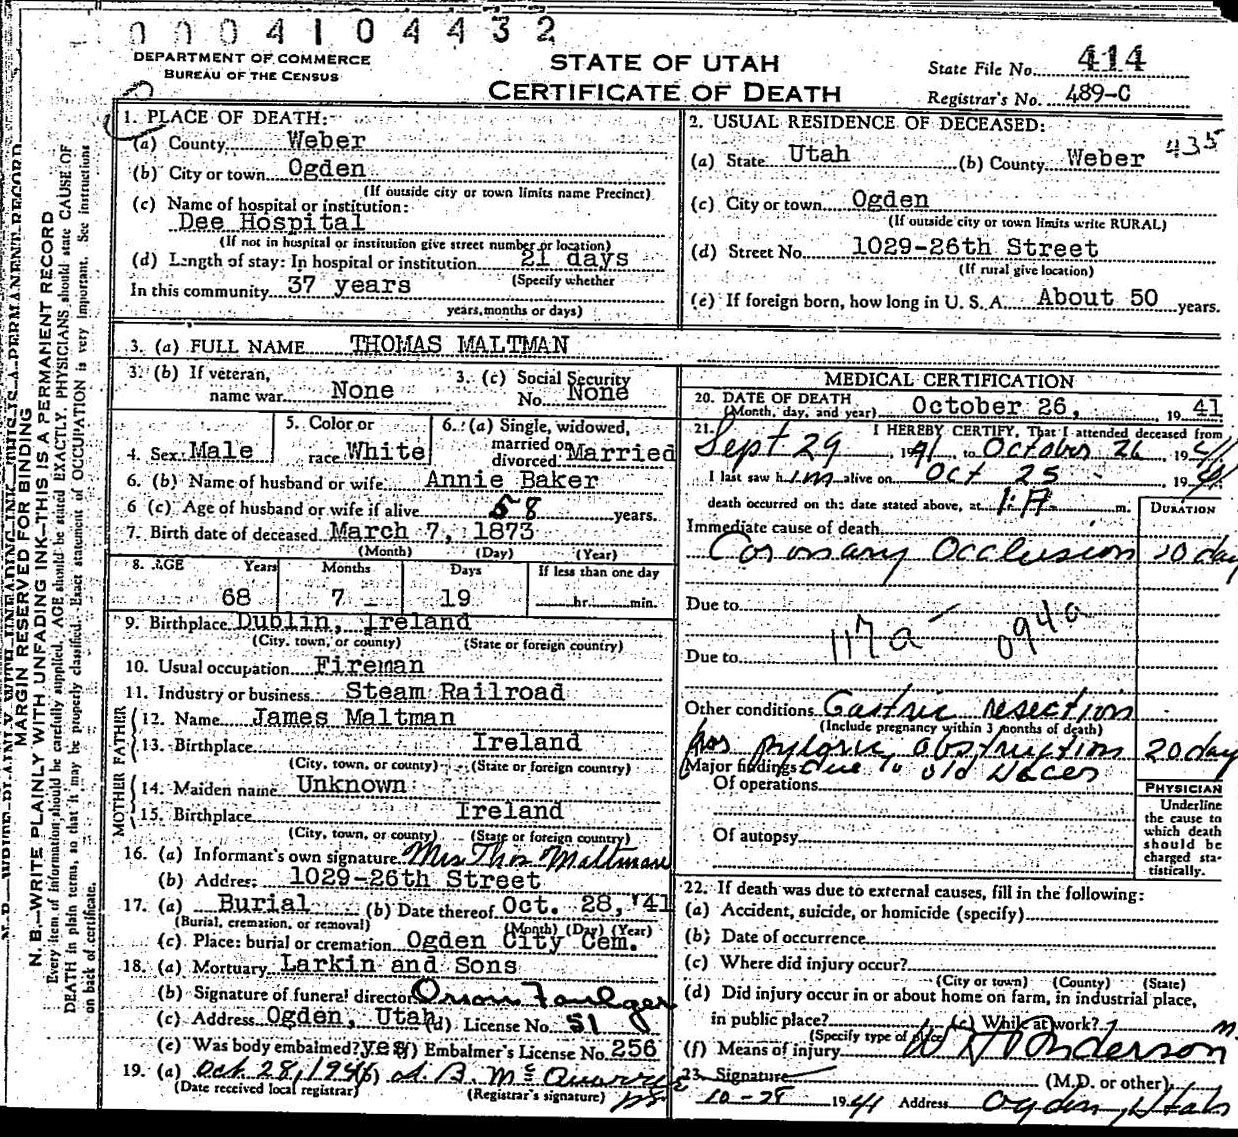 0004104432
DEPARTMENT OF COMMERCE
BUREAU OF THE CENSUS
STATE OF UTAH
CERTIFICATE OF DEATH
State File No. 414
Registrar's No. 489-C
1. PLACE OF DEATH:
(a) County Weber
(b) City or town Ogden
(If outside city or town limits name Precinct)
(c) Name of hospital or institution:
Dee Hospital
(If not in hospital or institution give street number or location)
(d) Length of stay: In hospital or institution 21 days
(Specify whether
In this community 37 years
years, months or days)
2. USUAL RESIDENCE OF DECEASED:
435
(a) State Utah (b) County Weber
(c) City or town Ogden
(If outside city or town limits write RURAL)
(d) Street No. 1029-26th Street
(If rural give location)
(e) If foreign born, how long in U. S. A. About 50 years.
3. (a) FULL NAME THOMAS MALTMAN
3. (b) If veteran,
name war None
3. (c) Social Security
No. None
4. Sex Male
5. Color or
race White
6. (a) Single, widowed,
married or
divorced Married
6. (b) Name of husband or wife Annie Baker
6 (c) Age of husband or wife if alive 58 years.
7. Birth date of deceased March 7, 1873
(Month) (Day) (Year)
8. AGE Years Months Days If less than one day
68 7 19 hr. min.
9. Birthplace Dublin, Ireland
(City, town, or county) (State or foreign country)
10. Usual occupation Fireman
11. Industry or business Steam Railroad
FATHER
12. Name James Maltman
13. Birthplace Ireland
(City, town, or county) (State or foreign country)
MOTHER
14. Maiden name Unknown
15. Birthplace Ireland
(City, town, or county) (State or foreign country)
16. (a) Informant's own signature Mrs Thos Maltman
(b) Address 1029-26th Street
17. (a) Burial (b) Date thereof Oct. 28, '41
(Burial, cremation, or removal) (Month) (Day) (Year)
(c) Place: burial or cremation Ogden City Cem.
18. (a) Mortuary Larkin and Sons
(b) Signature of funeral director Orson Foulger
(c) Address Ogden, Utah (d) License No. 51
(e) Was body embalmed? yes (f) Embalmer's License No. 256
19. (a) Oct 28, 194
(Date received local registrar) (Registrar's signature)
MEDICAL CERTIFICATION
20. DATE OF DEATH
(Month, day, and year) October 26, 1941
21. I HEREBY CERTIFY, That I attended deceased from
Sept 29, 1941 to October 26, 1941
I last saw him alive on Oct 25 1941
death occurred on the date stated above, at 1:A m.
DURATION
Immediate cause of death
Coronary Occlusion 20 day
Due to
117a 094a
Due to
Other conditions Gastric resection
(Include pregnancy within 3 months of death)
for pyloric obstruction 20 day
Major findings: due to old ulcer
Of operations
Of autopsy
PHYSICIAN
Underline
the cause to
which death
should be
charged sta-
tistically.
22. If death was due to external causes, fill in the following:
(a) Accident, suicide, or homicide (specify)
(b) Date of occurrence
(c) Where did injury occur?
(City or town) (County) (State)
(d) Did injury occur in or about home on farm, in industrial place,
in public place? (e) While at work?
(Specify type of place)
(f) Means of injury
23. Signature Anderson (M.D. or other)
10-28 1941 Address Ogden, Utah
N. B.—WRITE PLAINLY WITH UNFADING INK—THIS IS A PERMANENT RECORD
MARGIN RESERVED FOR BINDING
Every item of information should be carefully supplied. AGE should be stated EXACTLY. PHYSICIANS should state CAUSE OF
DEATH in plain terms, so that it may be properly classified. Exact statement of OCCUPATION is very important. See instructions
on back of certificate.